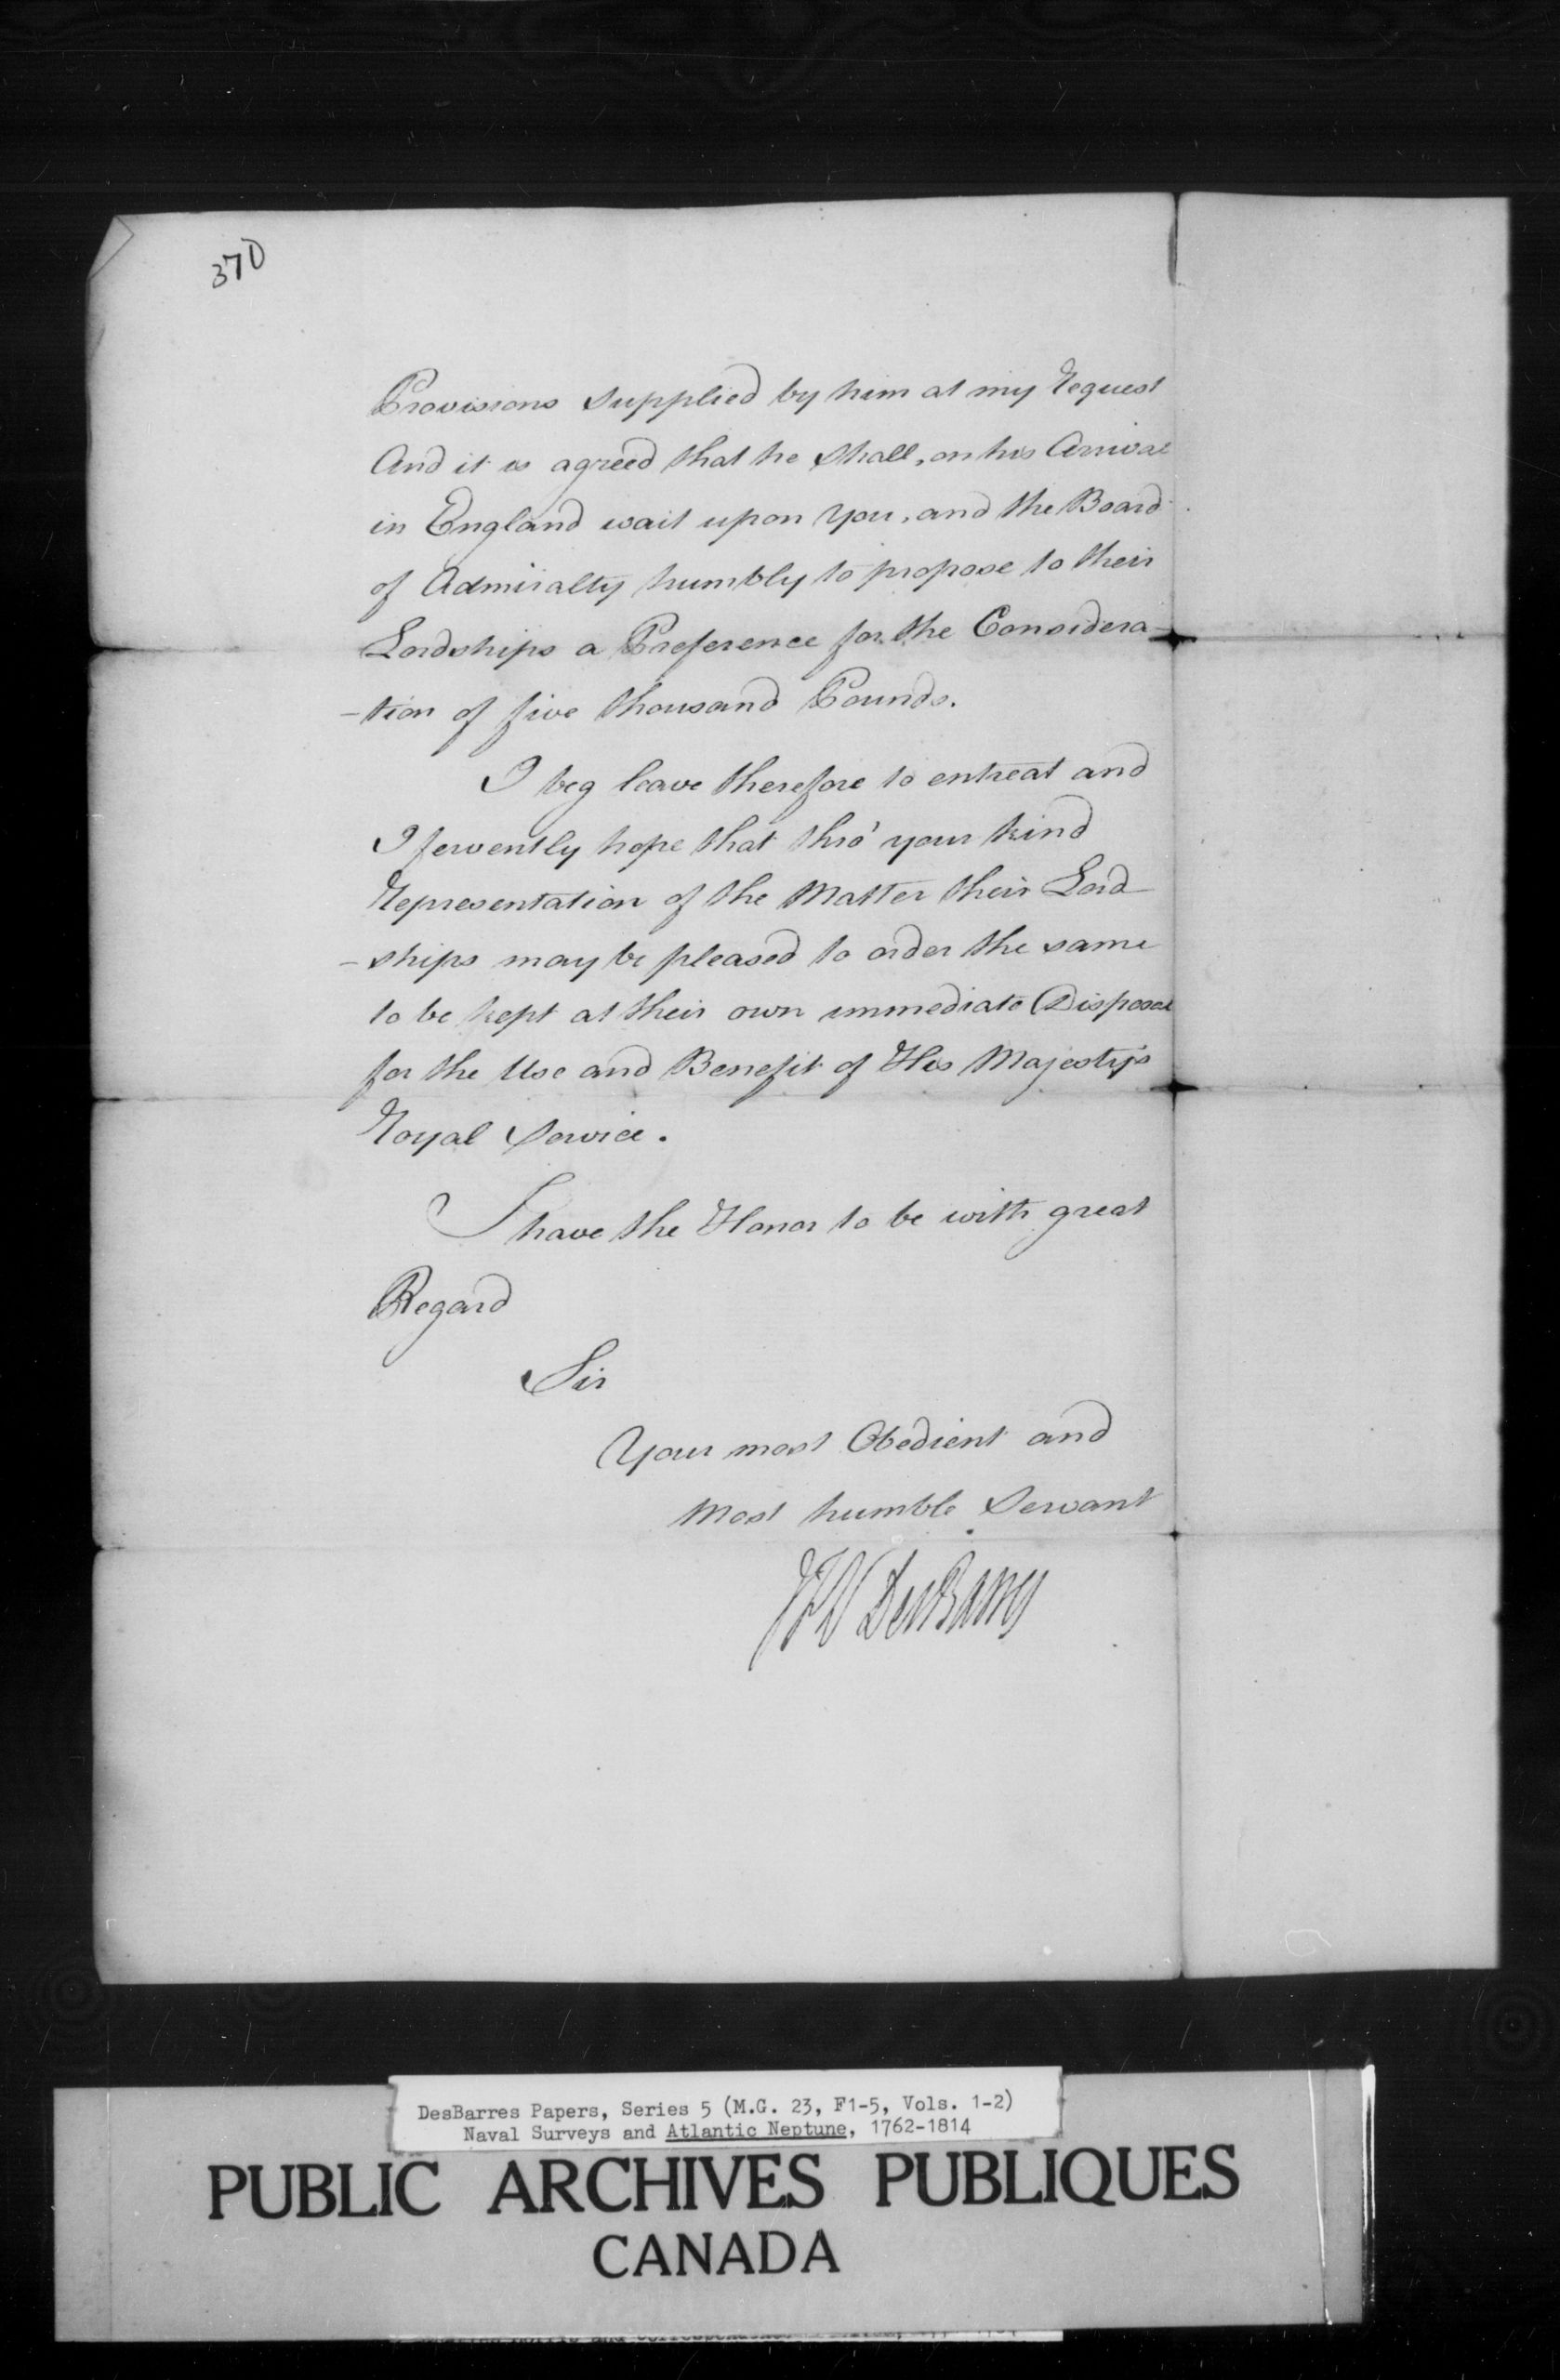 370
Provisions supplied by him at my Request
And it is agreed that he shall, on his Arrival
in England wait upon You, and the Board
of Admiralty humbly to propose to their
Lordships a Preference for the Considera-
-tion of five thousand Pounds.
I beg leave therefore to entreat and
I fervently hope that thro' your kind
Representation of the Matter their Lord-
-ships may be pleased to order the same
to be kept at their own immediate Disposal
for the Use and Benefit of His Majesty's
Royal Service.
I have the Honor to be with great
Regard
Sir
Your most Obedient and
most humble Servant
JFW DesBarres
DesBarres Papers, Series 5 (M.G. 23, F1-5, Vols. 1-2)
Naval Surveys and Atlantic Neptune, 1762-1814
PUBLIC ARCHIVES PUBLIQUES
CANADA